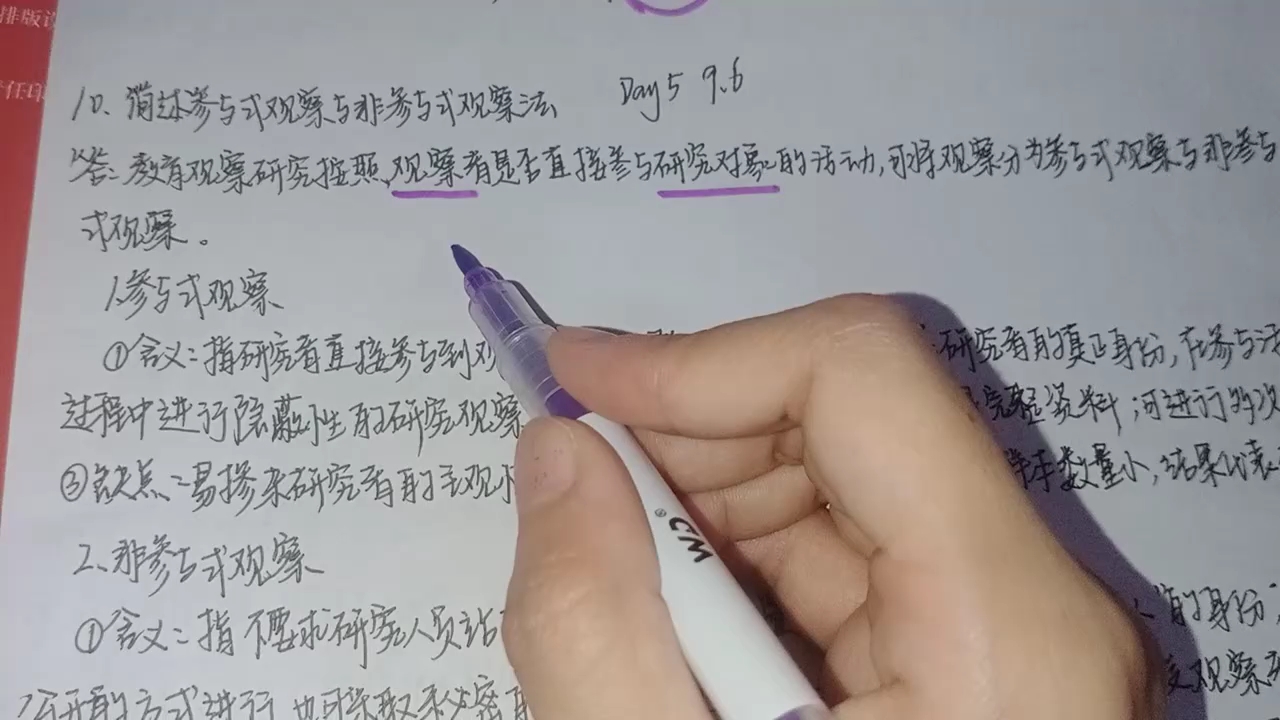 排版设
责任印
10、简述参与式观察与非参与式观察法 Day5 9.6
答：教育观察研究按照，观察者是否直接参与研究对象的活动，可将观察分为参与式观察与非参与
式观察。
1.参与式观察
①含义：指研究者直接参与到观 研究者的真正身份，在参与活
过程中进行隐蔽性的研究观察 完整资料；可进行多次
③缺点：易掺杂研究者的主观 样本数量小，结果代表
2、非参与式观察
①含义：指不要求研究人员站 的身份，
公开的方式进行，也可采取秘密 观察